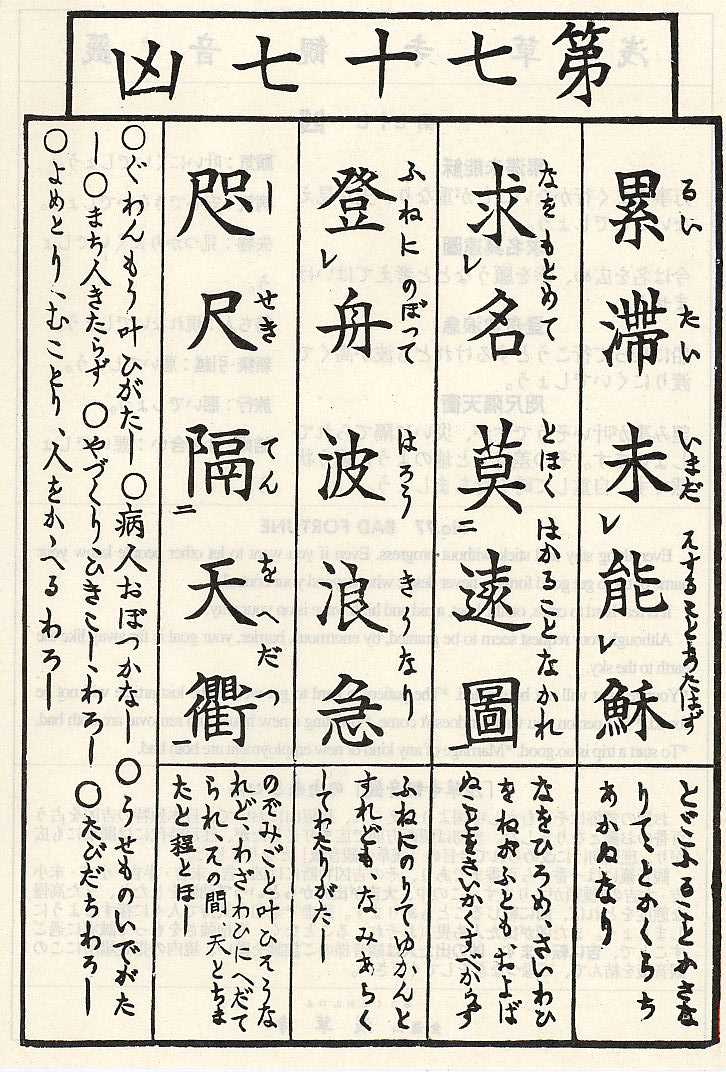 第七十七凶
るい たい いまだ えすることあたはず
累滯未レ能穌
とどこふることかさな
なをもとめて とほくはかることなかれ
求レ名莫二遠圖一
なをひろめさいわひ
をねがふとも、およば
ぬことをさいかくすべからず
ふねにのぼつて はらう きうなり
登レ舟波浪急
ふねにのりてゆかんと
すれども、なみあらく
してわたりがた
しせき てんをへだつ
咫尺隔二天衢一
のぞみごと叶ひそうな
れど、わざわひにへだて
られ、その間天とちま
たと程とほ
○ぐわんもう叶ひがたし○病人おぼつかなし ○うせものいでがた
し○まち人きたらず ○やづくりひきこし、わろし ○たびだちわろし
○よめとり、むことり、人をかゝへるわろし